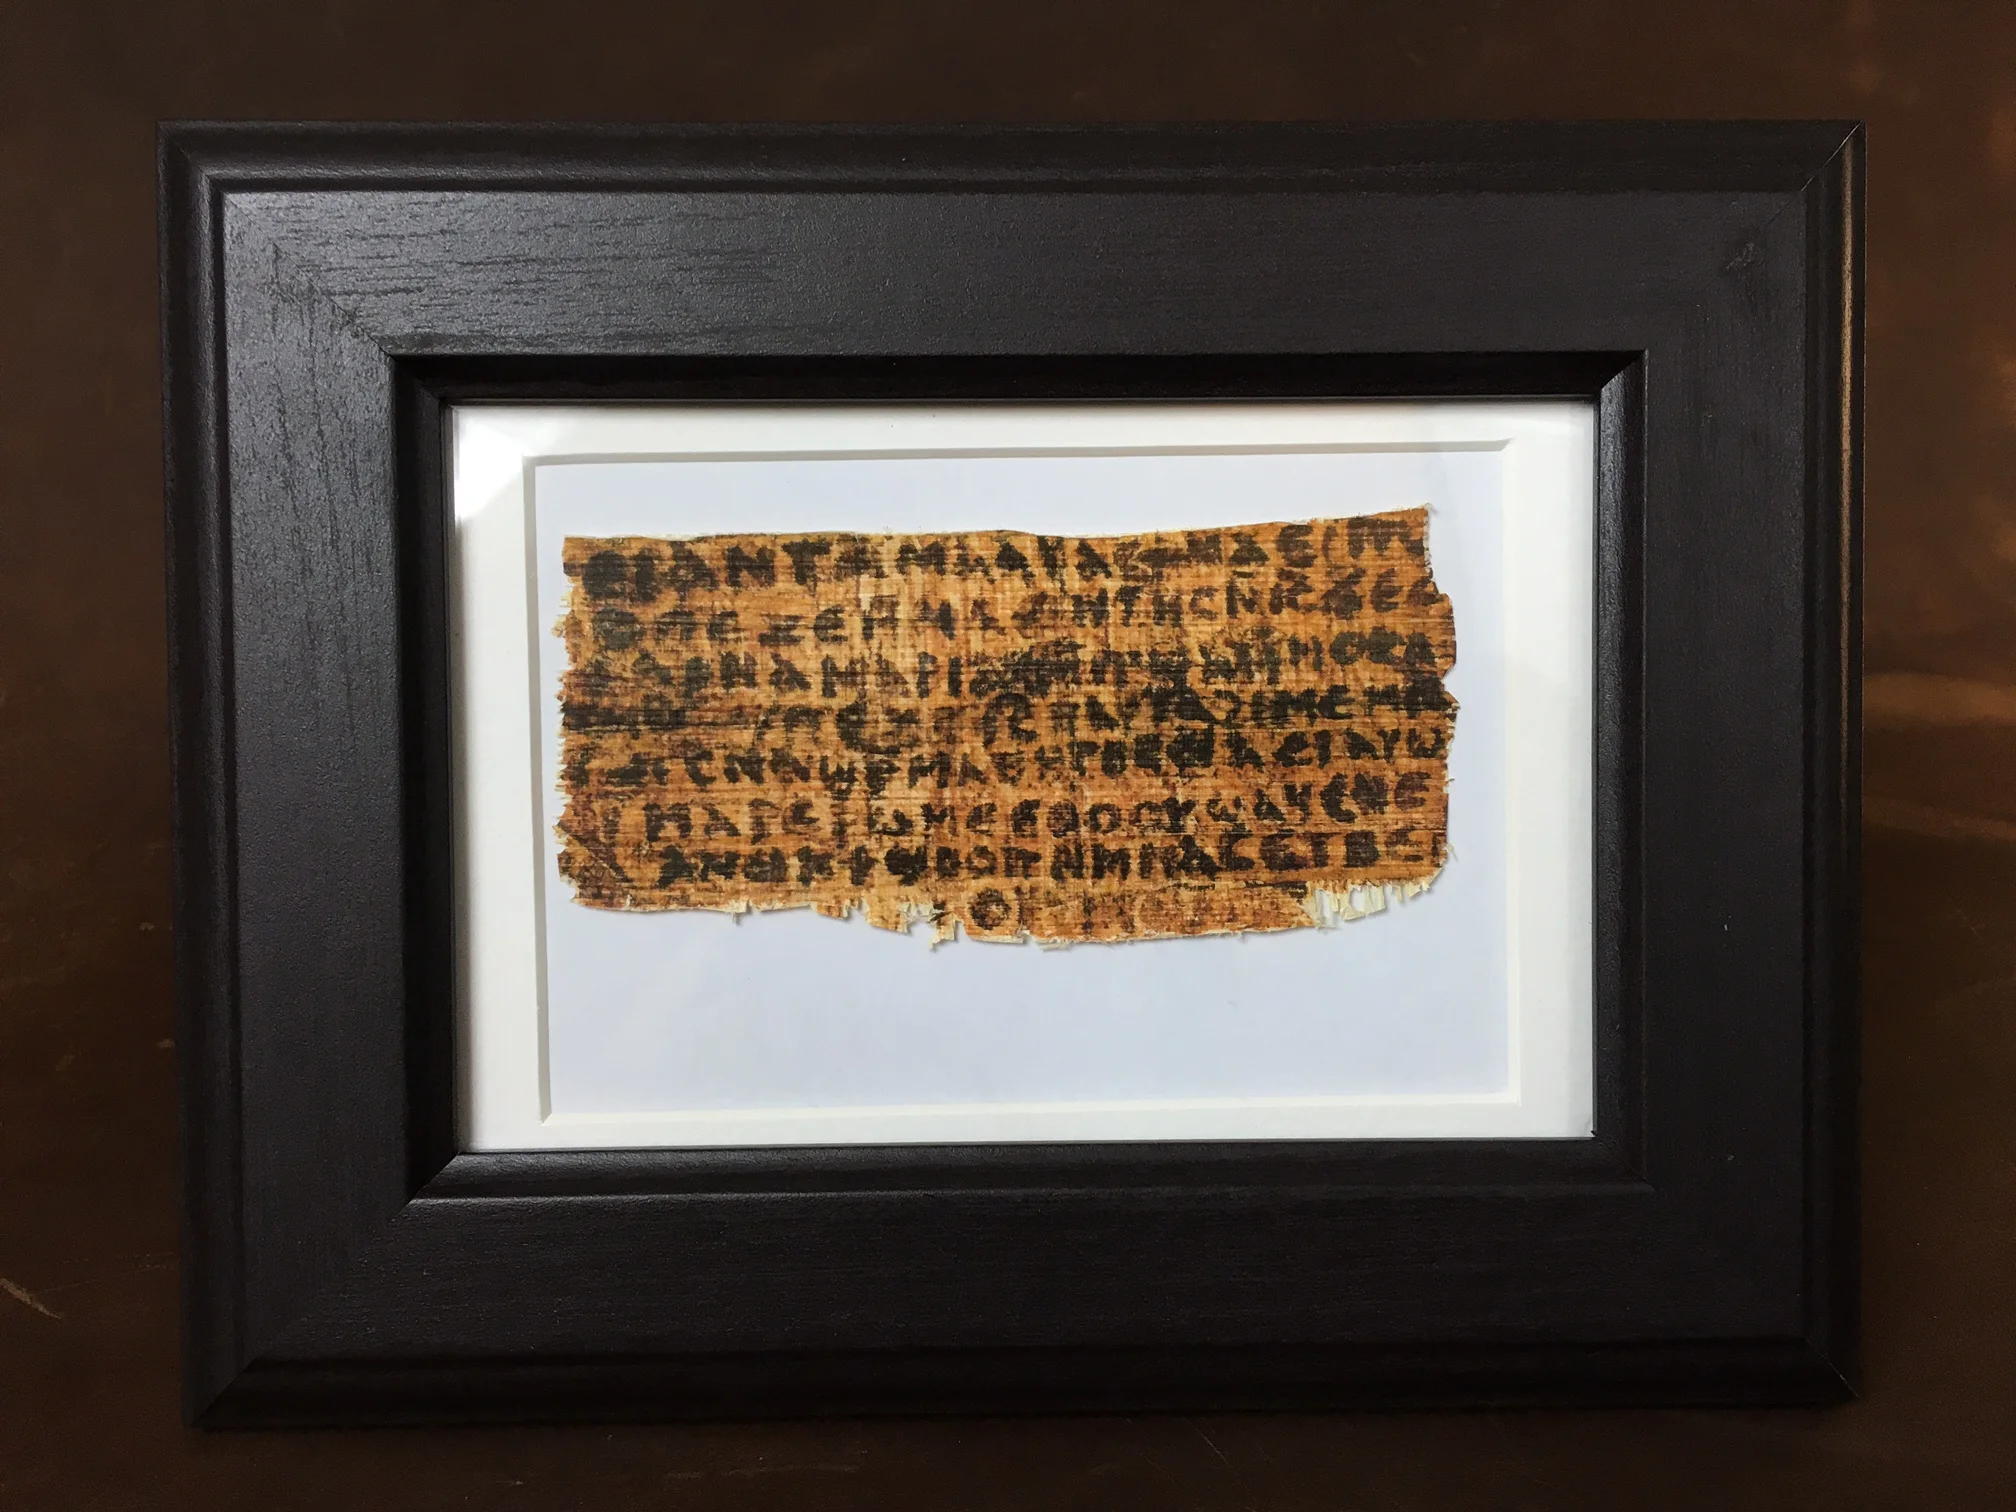 ⲛⲁⲉⲓ ⲁⲛ ⲧⲁⲙⲁⲁⲩ ⲁⲥϯ ⲛⲁⲉⲓ
ⲡⲉϫⲉ ⲙⲙⲁⲑⲏⲧⲏⲥ ⲛⲓⲥ ϫⲉ ⲥ
ⲁⲣⲛⲁ ⲙⲁⲣⲓⲁⲙ ⲙⲡϣⲁ ⲙⲙⲟⲥ ⲁ
ⲡⲉϫⲉ ⲓⲥ ⲛⲁⲩ ⲧⲁϩⲓⲙⲉ ⲙⲛ
ⲥⲛⲁϣⲣⲙⲁⲑⲏⲧⲏⲥ ⲛⲁⲉⲓ ⲁⲩⲱ
ⲓ ⲙⲁⲣⲉⲣⲱⲙⲉ ⲉⲑⲟⲟⲩ ϣⲁϥⲉ ⲛⲉ
ⲁⲛⲟⲕ ϯϣⲟⲟⲡ ⲛⲙⲙⲁⲥ ⲉⲧⲃⲉ